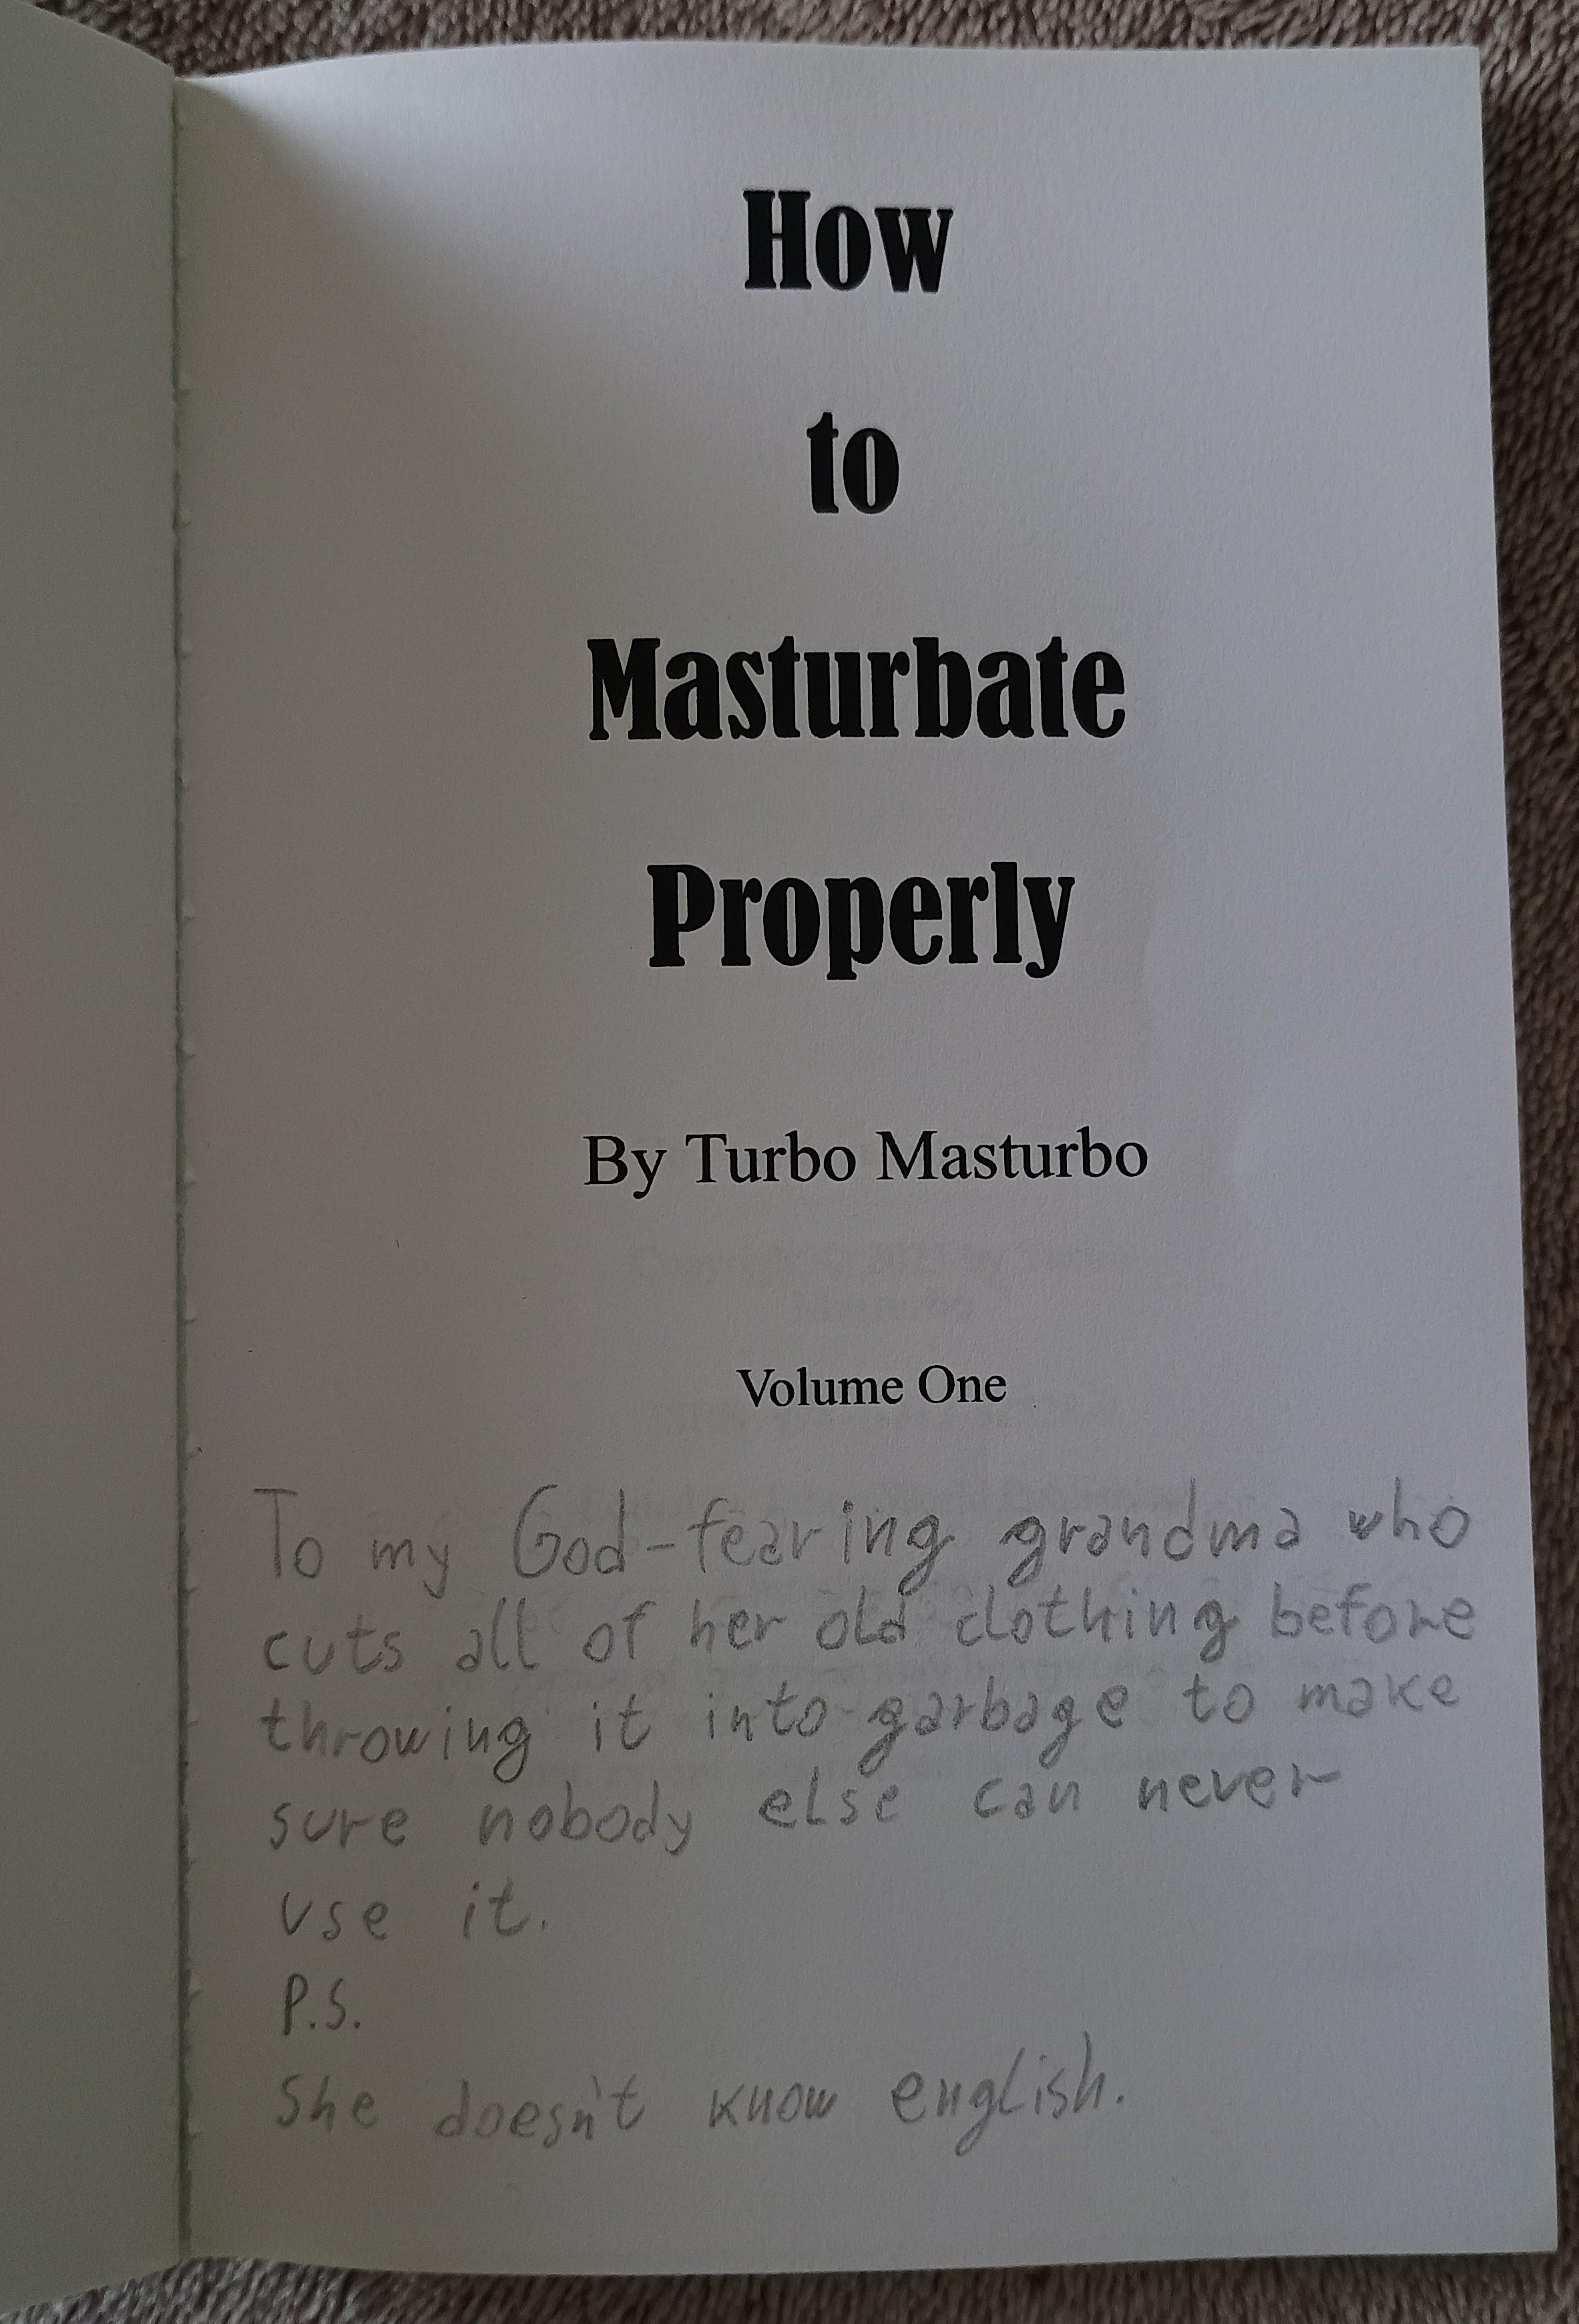 How
to
Masturbate
Properly
By Turbo Masturbo
Volume One
To my God-fearing grandma who
cuts all of her old clothing before
throwing it into garbage to make
sure nobody else can never
use it.
P.S.
She doesn't know english.